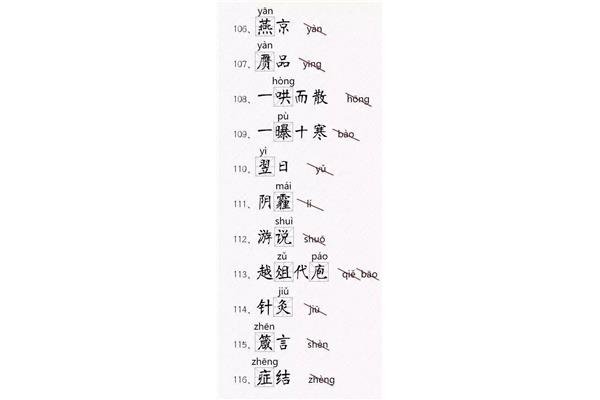 yān
106、燕京 yàn
yàn
107、赝品 yīng
hòng
108、一哄而散 hōng
pù
109、一曝十寒 bào
yì
110、翌日 yǔ
mái
111、阴霾 lí
shuì
112、游说 shuō
zǔ páo
113、越俎代庖 qiě bāo
jiǔ
114、针灸 jiū
zhēn
115、箴言 shèn
zhēng
116、症结 zhèng